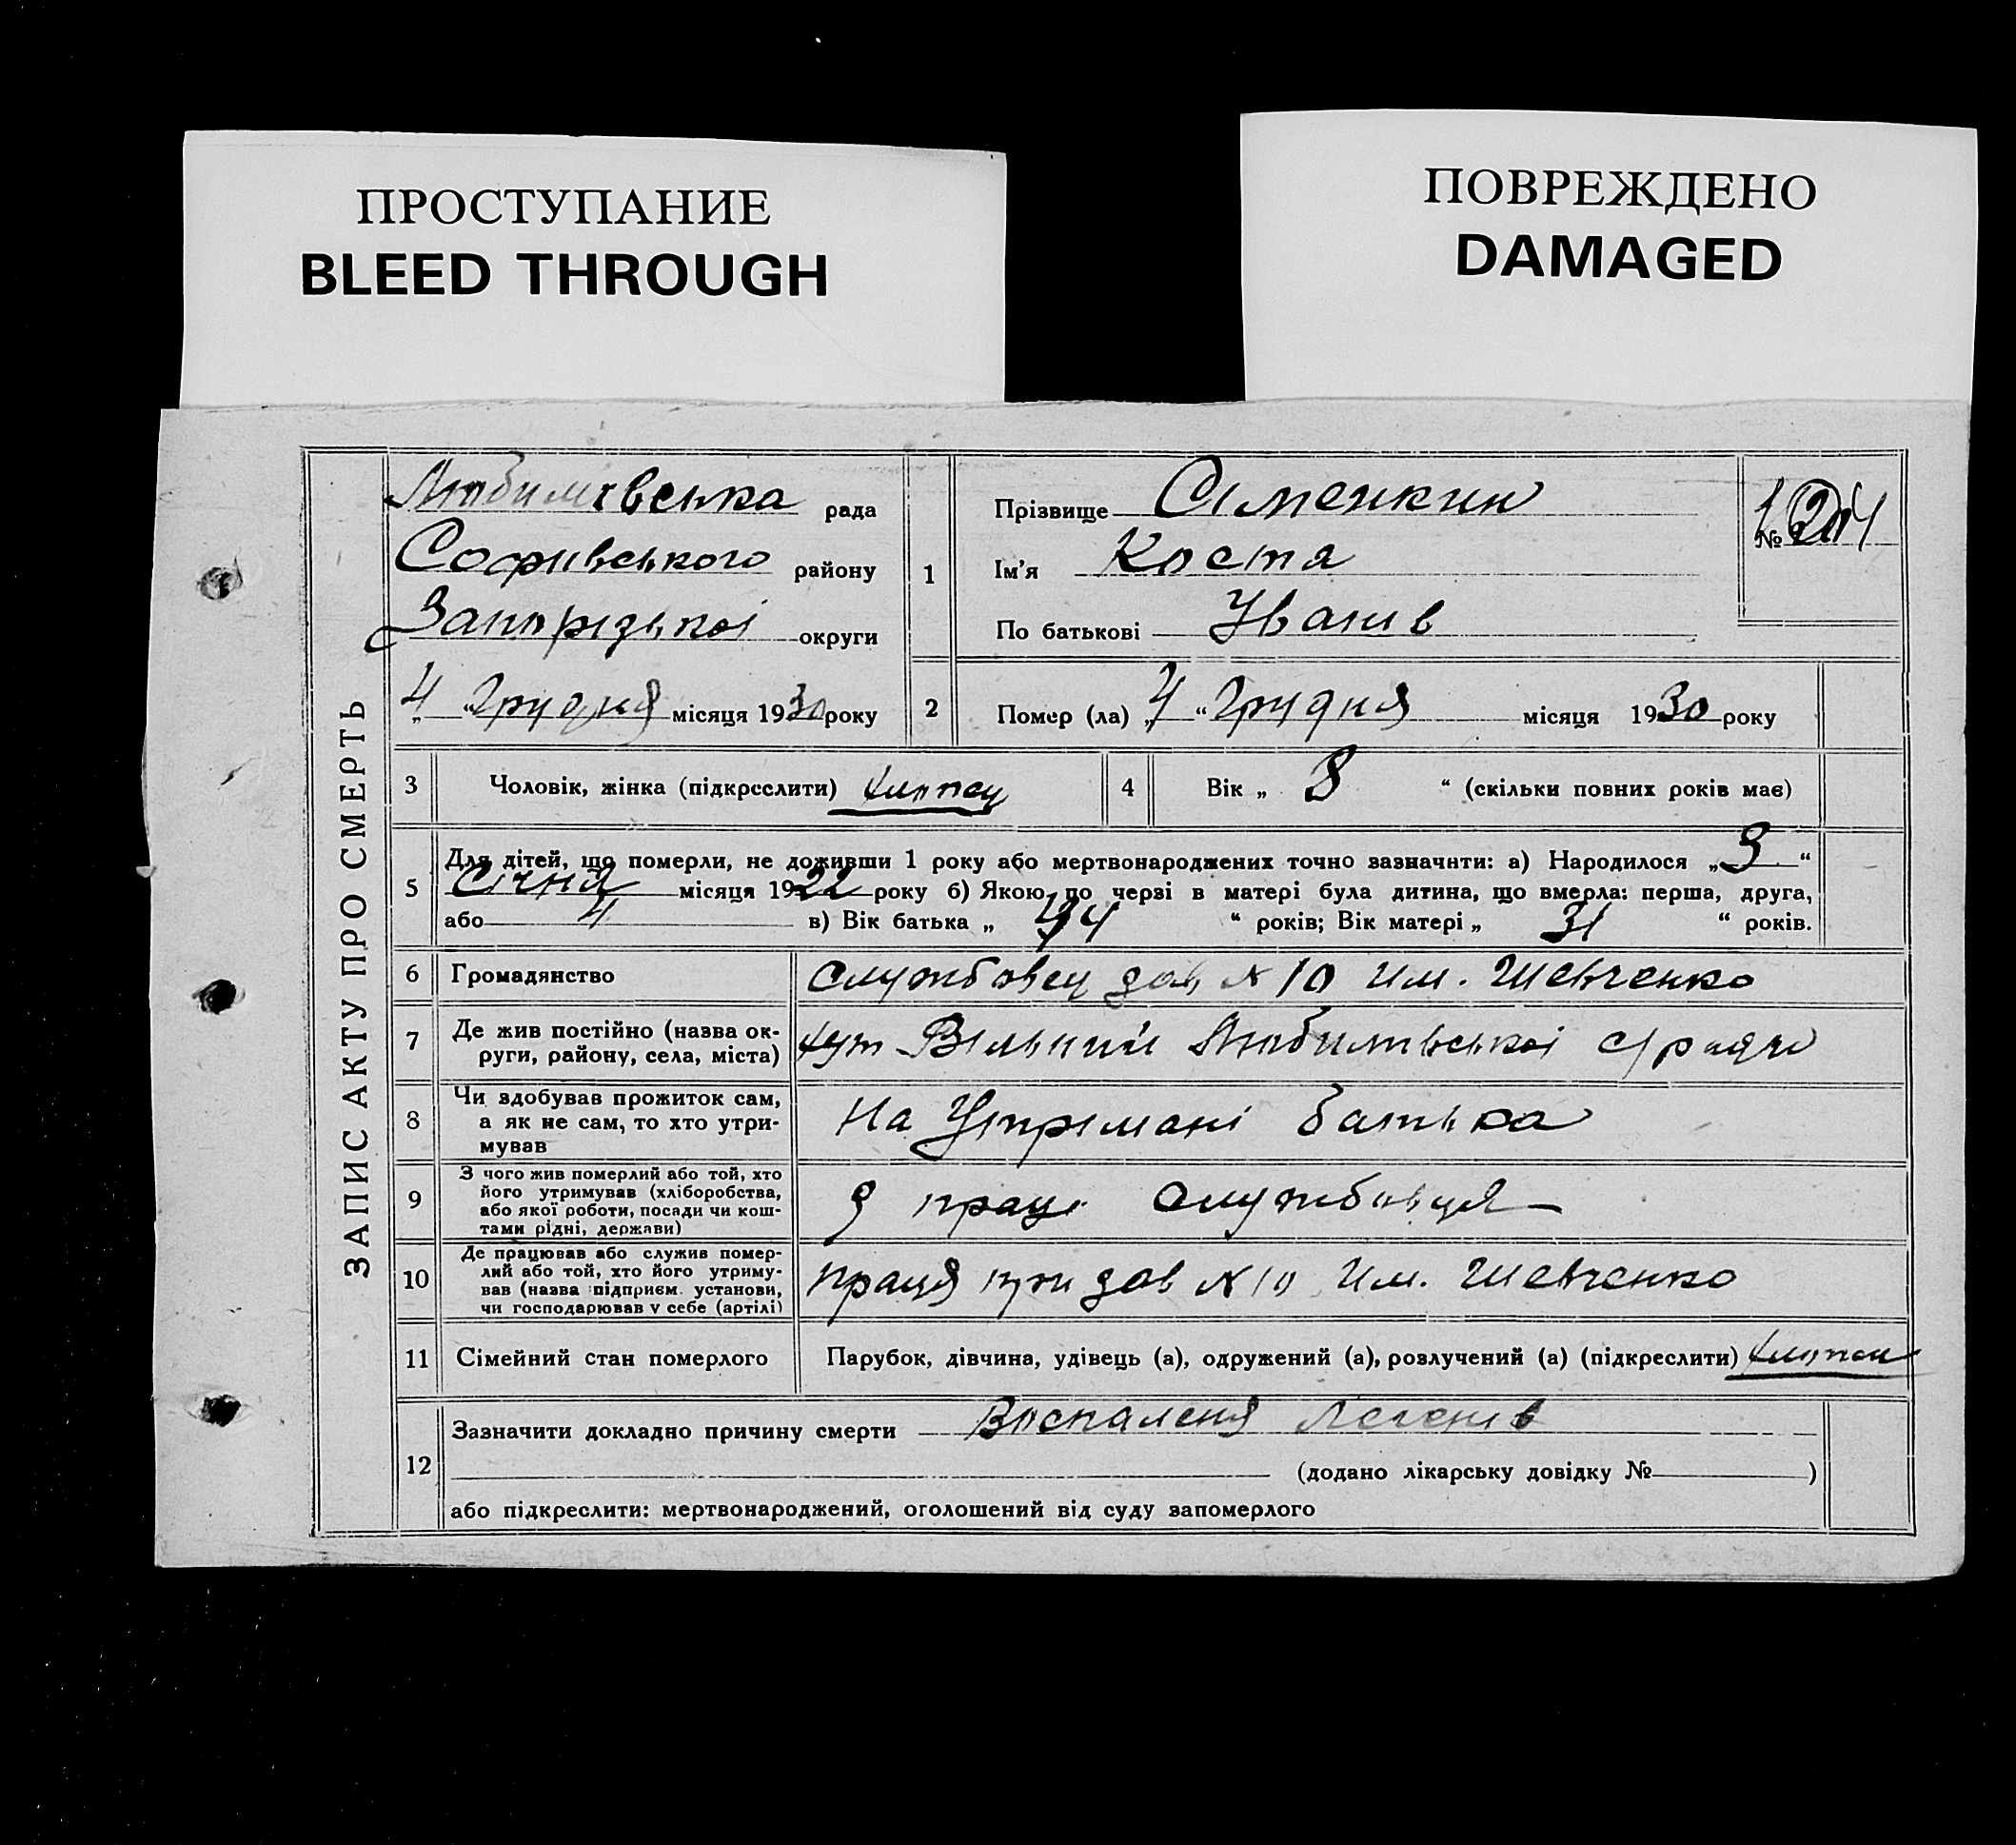 ПРОСТУПАНИЕ
BLEED THROUGH
ПОВРЕЖДЕНО
DAMAGED
ЗАПИС АКТУ ПРО СМЕРТЬ
Любимівська рада
Софиівського району
Запорізькоі округи
„4“ Грудня місяця 1930 року
1
Прізвище Сіменкин
Ім'я Костя
По батькові Іванів
№
2 Помер (ла) „4“ Грудня місяця 1930 року
3 Чоловік, жінка (підкреслити) хлопец
4 Вік „8“ (скільки повних років має)
5 Для дітей, що померли, не доживши 1 року або мертвонароджених точно зазначити: а) Народилося „9“
Січня місяця 1922 року б) Якою по черзі в матері була дитина, що вмерла: перша, друга,
або 4 в) Вік батька „34“ років; Вік матері „31“ років.
6 Громадянство службовец дов № 10 Им. Шевченко
7 Де жив постійно (назва ок-
руги, району, села, міста) хут Вільний Любимівськоі с/ради
8 Чи здобував прожиток сам,
а як не сам, то хто утри-
мував На Утримані батька
9 З чого жив померлий або той, хто
його утримував (хліборобства,
або якої роботи, посади чи кош-
тами рідні, держави) З праці службовця
10 Де працював або служив помер-
лий або той, хто його утриму-
вав (назва підприєм. установи,
чи господарював у себе (артілі) праця при дов № 10 Им. Шевченко
11 Сімейний стан померлого Парубок, дівчина, удівець (а), одружений (а), розлучений (а) (підкреслити) хлопец
12 Зазначити докладно причину смерти Воспаленя Легенів
(додано лікарську довідку № )
або підкреслити: мертвонароджений, оголошений від суду запомерлого